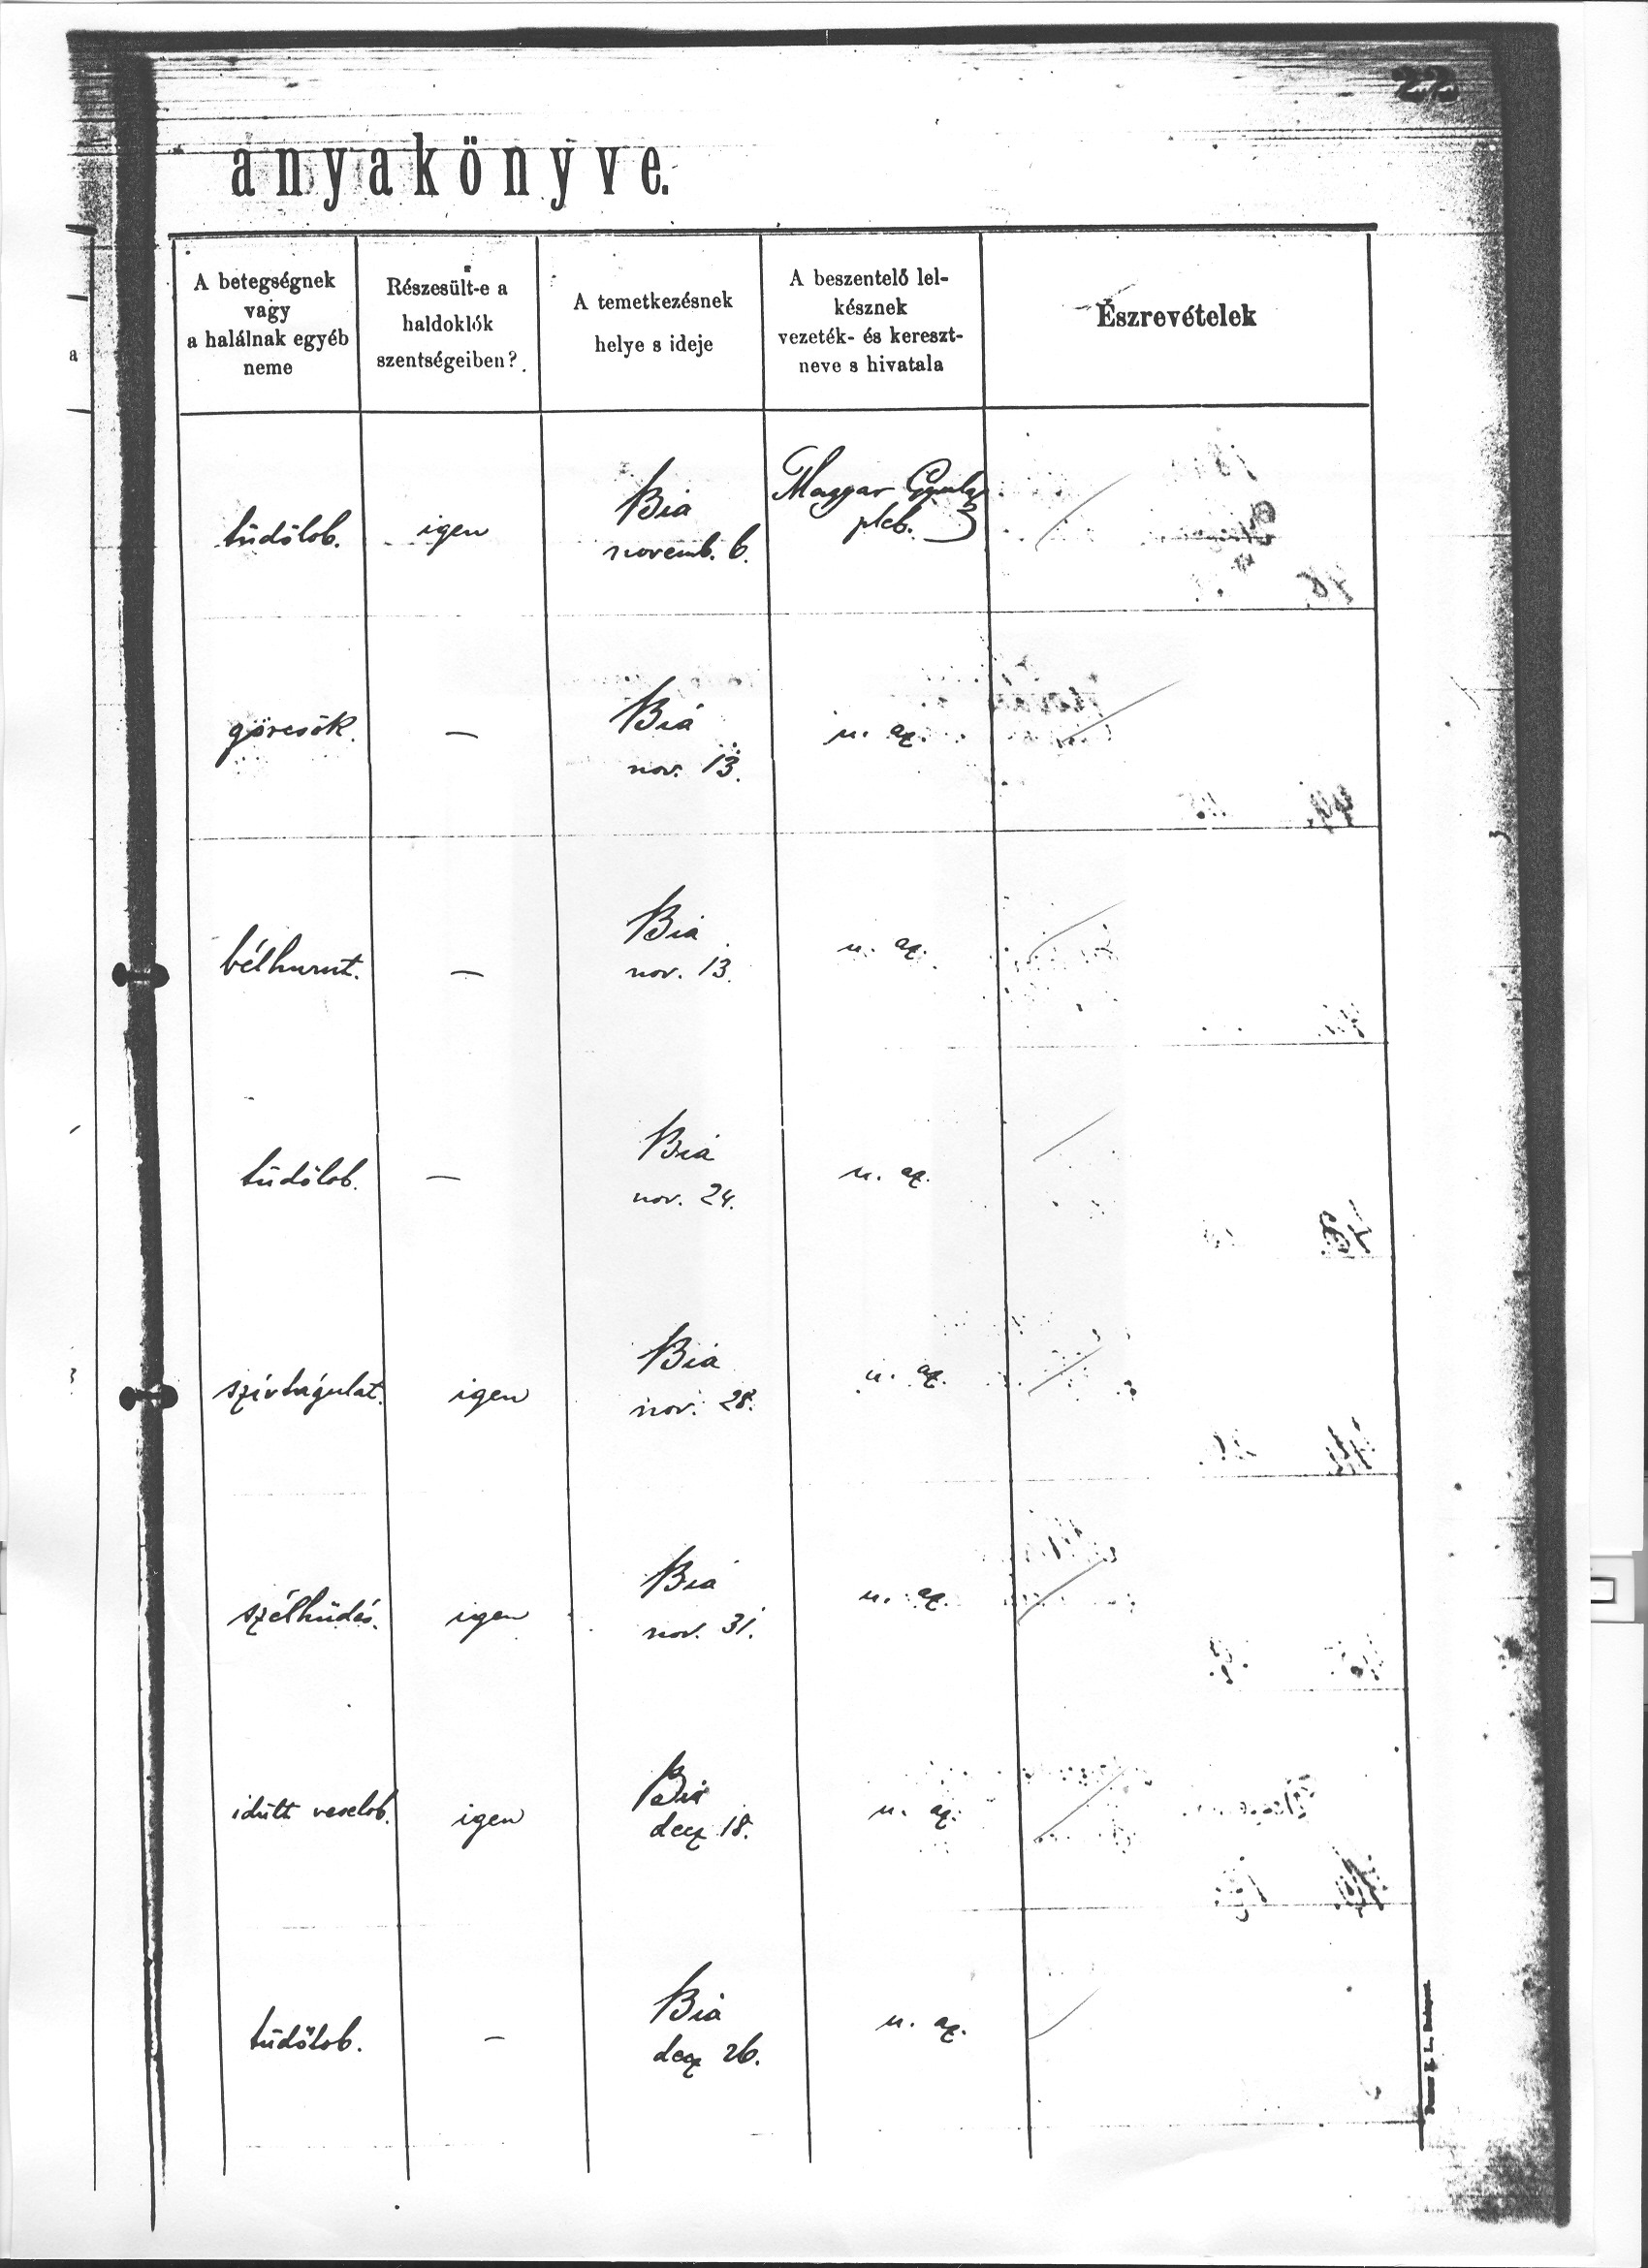 22
anyakönyve.
A betegségnek
vagy
a halálnak egyéb
neme
Részesült-e a
haldoklók
szentségeiben?
A temetkezésnek
helye s ideje
A beszentelő lel-
késznek
vezeték- és kereszt-
neve s hivatala
Észrevételek
a
tüdőlob.
igen
Bia
novemb. 6.
Magyar Gyula
pleb.
görcsök.
—
Biá
nov. 13.
u. az.
bélhurut.
—
Bia
nov. 13.
u. az.
tüdőlob.
—
Biá
nov. 24.
u. az.
szívtágulat.
igen
Bia
nov. 28.
u. az.
szélhüdés.
igen
Bia
nov. 31.
u. az.
idült veselob.
igen
Bia
decz 18.
u. az.
tüdőlob.
—
Bia
decz 26.
u. az.
L. Budapest.